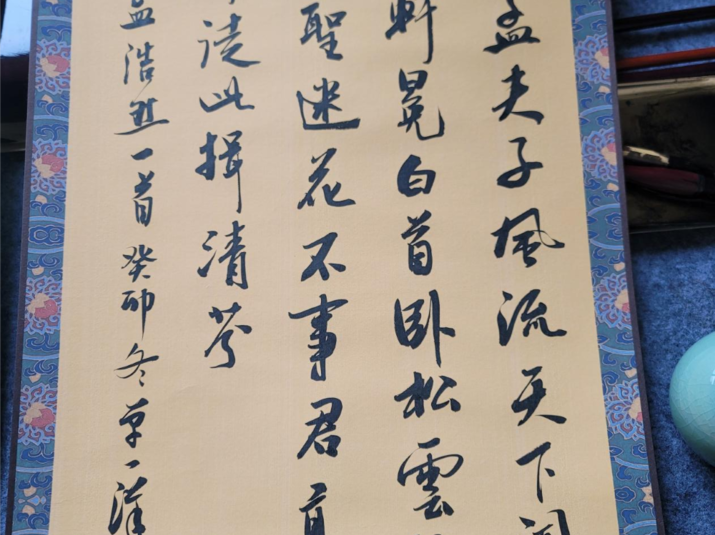 孟夫子風流天下聞
軒冕白首卧松雲
聖迷花不事君高
徒此揖清芬
孟浩然一首癸卯冬草一